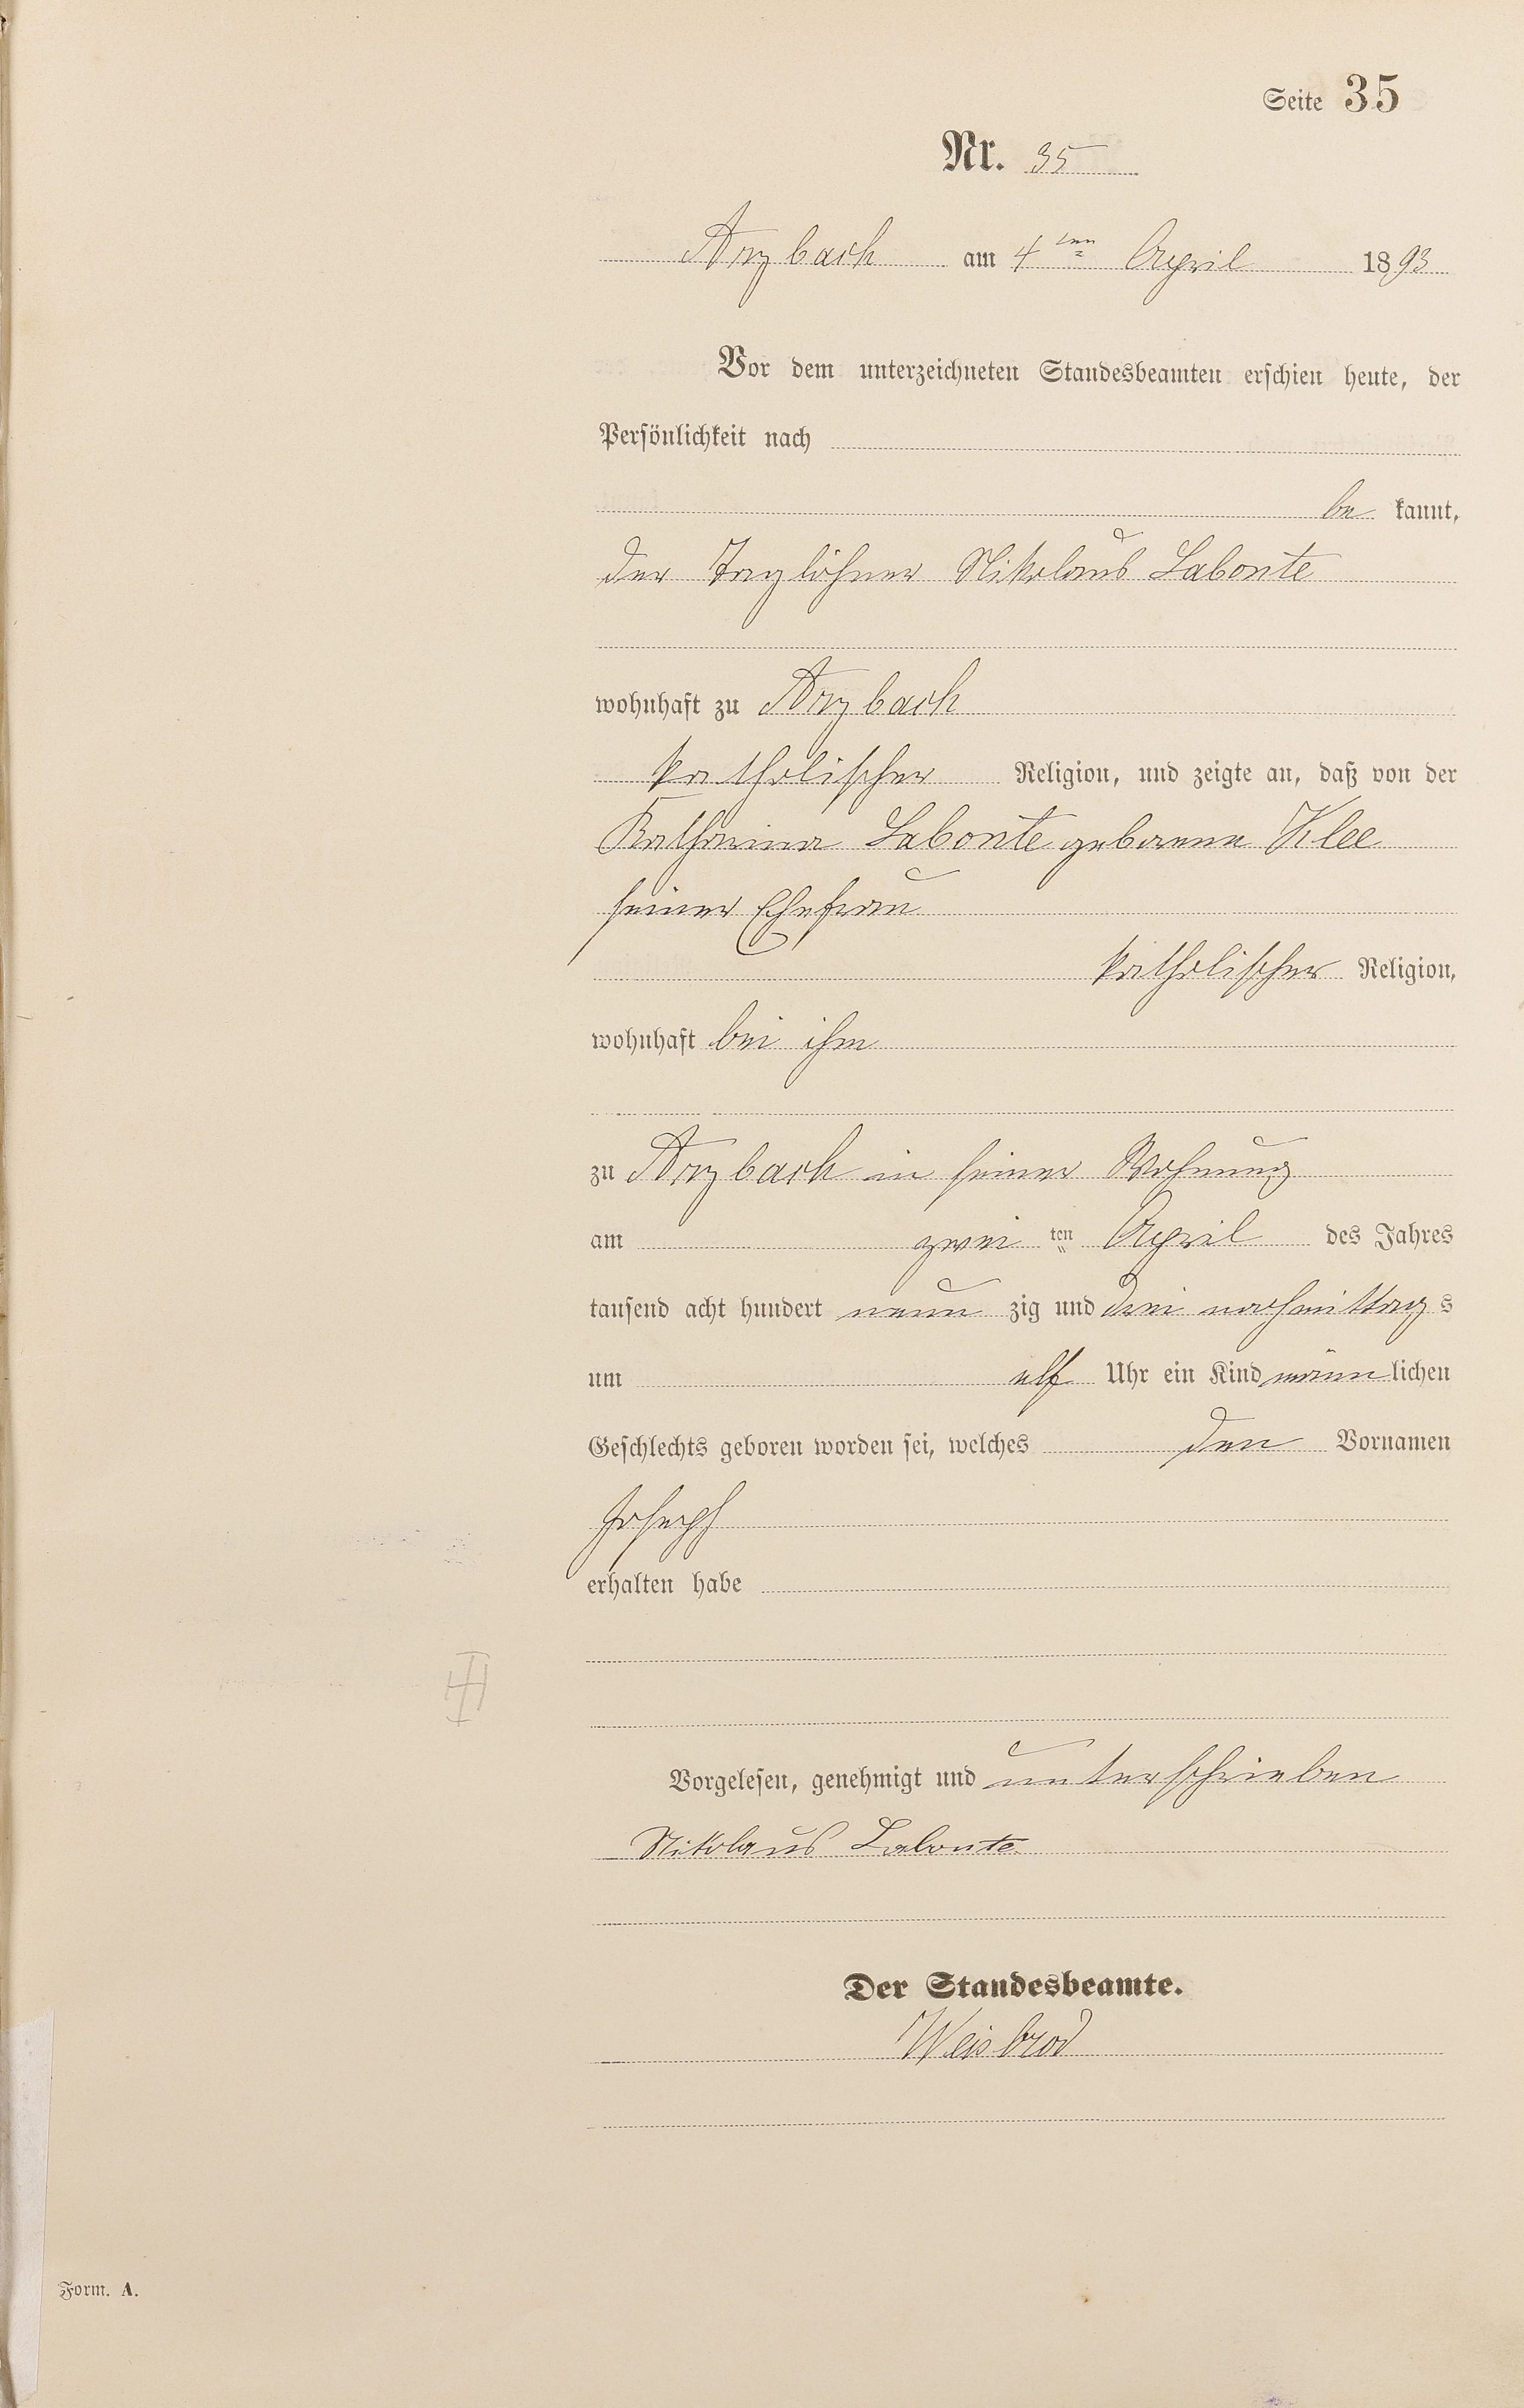 Seite 35
Nr. 35
Arzbach am 4ten April 1893
Vor dem unterzeichneten Standesbeamten erschien heute, der
Persönlichkeit nach
be kannt,
der Taglöhner Nikolaus Labonte
wohnhaft zu Arzbach
katholischer Religion, und zeigte an, daß von der
Katharina Labonte geborene Klee
seiner Ehefrau
katholischer Religion,
wohnhaft bei ihm
zu Arzbach in seiner Wohnung
am zwei ten April des Jahres
tausend acht hundert neun zig und drei nachmittag s
um elf Uhr ein Kind männ lichen
Geschlechts geboren worden sei, welches den Vornamen
Joseph
erhalten habe
Vorgelesen, genehmigt und unterschrieben
Nikolaus Labonte
Der Standesbeamte.
Weisbrod
Form. A.